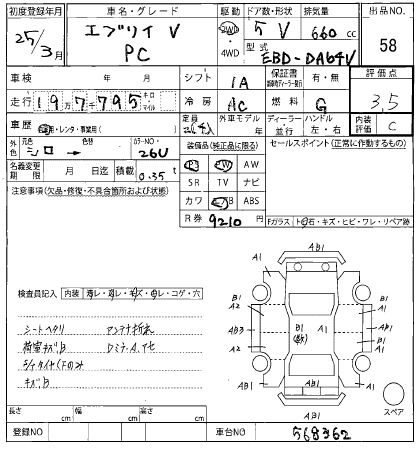 初度登録年月 車名・グレード 駆動 ドア数・形状 排気量 出品NO.
25/3月 エブリイ V PC 2WD ・ 4WD 5 V 660 cc 58
型式 EBD-DA64V
車検 年 月 シフト IA 保証書 有・無 評価点
走行 19万7795 キロ マイル 冷房 AC 燃料 G 3,5
車歴 自家用・レンタ・事業用( ) 定員 2(4)人 外車モデル 年 ディーラー 並行 ハンドル 左・右 内装評価 C
元色 シロ → 色替 カラーNO・ 26U 装備品(純正品に限る) セールスポイント(正常に作動するもの)
名義変更期限 月 日迄 積載 0.35 t PS PW AW
注意事項(欠品・修復・不具合箇所および状態) SR TV ナビ
カワ エアB ABS
R券 9210 円
Fガラス トビ石・キズ・ヒビ・ワレ・リペア跡
検査員記入 内装 汚レ・コゲ・穴
シートヘタリ アンテナ折れ
荷室キズ,B DミラーA,アセ
キズB
A1 AB1 A1
B1 A2 B1 A1
AB3 B1 A1 A1
A2 B1
A1 AB1 A1
AB1 スペア
長さ cm 幅 cm 高さ cm
登録NO 車台NO 568362